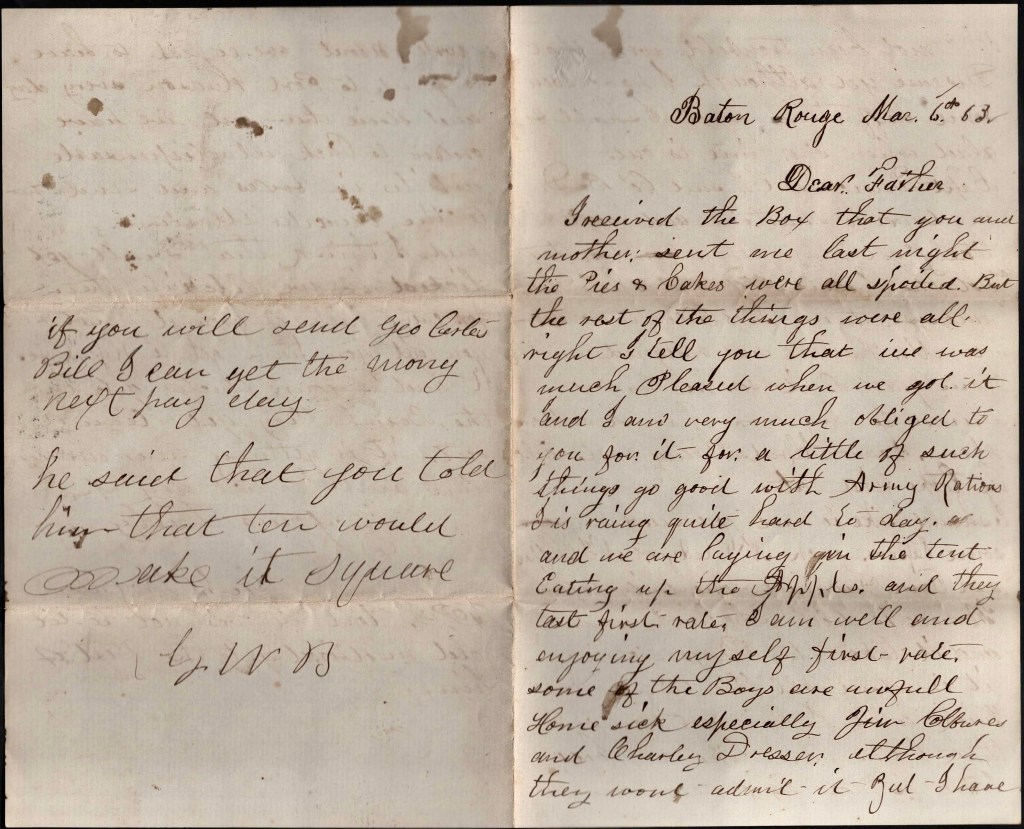 Baton Rouge Mar. 6th 63.
Dear Father
I received the Box that you and
mother sent me last night
the Pies & Cakes were all spoiled. But
the rest of the things were all
right I tell you that we was
much Pleased when we got it
and I am very much obliged to
you for it for a little of such
things go good with Army Rations
I is raing quite hard to day.
and we are laying in the tent
Eating up the Apples. and they
tast first rate, I am well and
enjoying myself first-rate.
some of the Boys are awfull
Home sick especially Jim
and Charley Dresser although
they wont admit it But I have
if you will send Geo Carter
Bill I can get the mony
next pay day
he said that you told
him that ten would
make it square
G W B